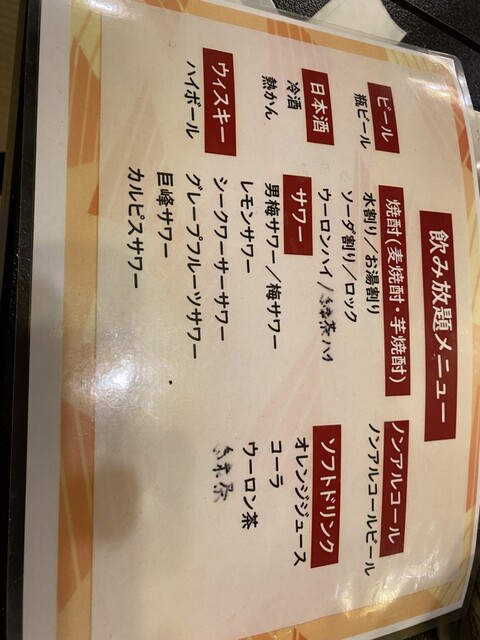 飲み放題メニュー
ビール
瓶ビール
日本酒
冷酒
熱かん
ウィスキー
ハイボール
焼酎(麦焼酎・芋焼酎)
水割り/お湯割り
ソーダ割り/ロック
ウーロンハイ/緑茶ハイ
サワー
男梅サワー/梅サワー
レモンサワー
シークワーサーサワー
グレープフルーツサワー
巨峰サワー
カルピスサワー
ノンアルコール
ノンアルコールビール
ソフトドリンク
オレンジジュース
コーラ
ウーロン茶
緑茶